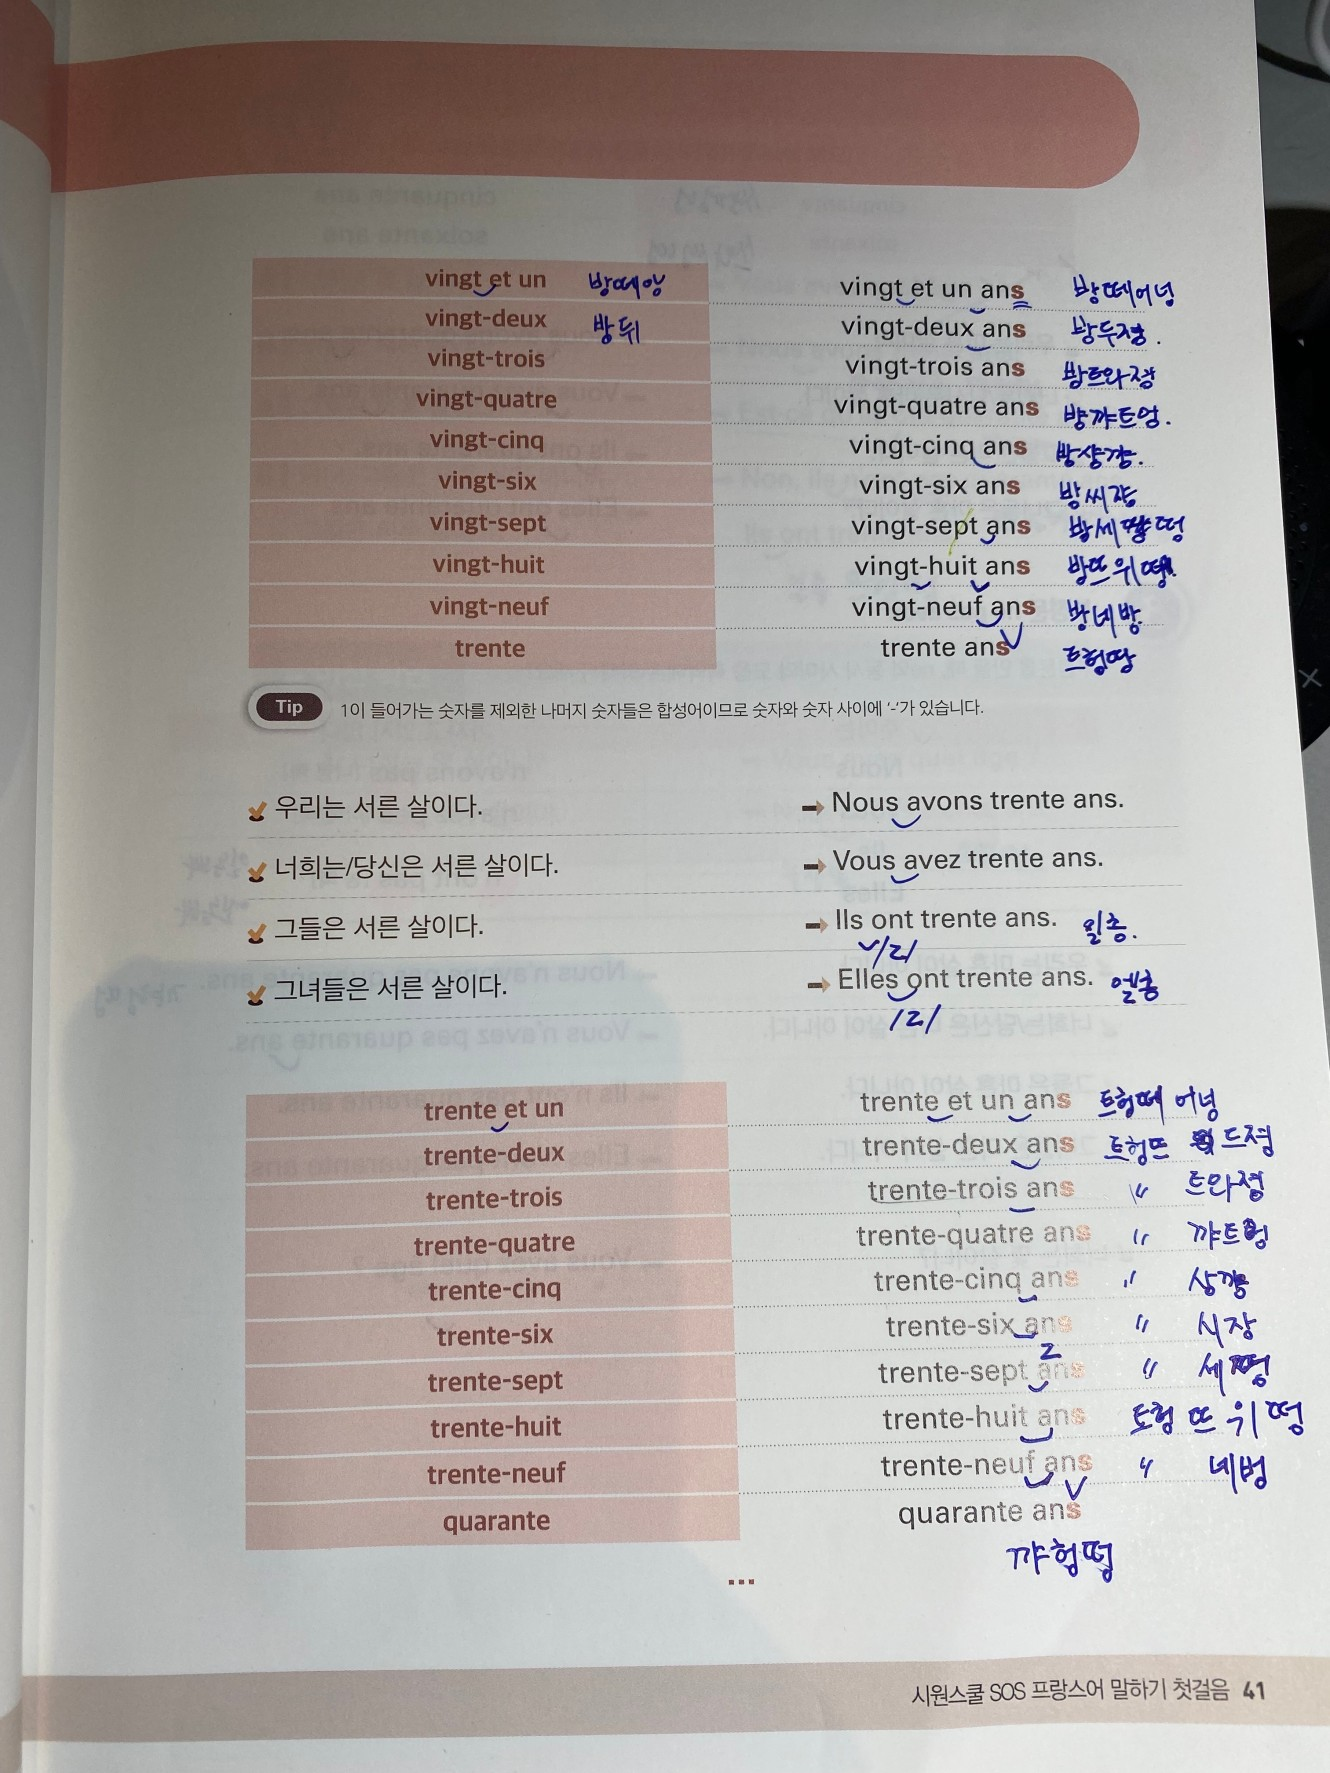 vingt et un 방떼앙 vingt et un ans 방떼어넝
vingt-deux 방뒤 vingt-deux ans 방두정.
vingt-trois vingt-trois ans 방트와쟝
vingt-quatre vingt-quatre ans 방꺄트엉.
vingt-cinq vingt-cinq ans 방샹깡.
vingt-six vingt-six ans 방씨쟝
vingt-sept vingt-sept ans 방세떵
vingt-huit vingt-huit ans 방뜨위떵.
vingt-neuf vingt-neuf ans 방네방
trente trente ans 트헝땅
Tip 1이 들어가는 숫자를 제외한 나머지 숫자들은 합성어이므로 숫자와 숫자 사이에 '-'가 있습니다.
우리는 서른 살이다. → Nous avons trente ans.
너희는/당신은 서른 살이다. → Vous avez trente ans.
그들은 서른 살이다. → Ils ont trente ans. 일종.
/z/
그녀들은 서른 살이다. → Elles ont trente ans. 엘종
/z/
trente et un trente et un ans 트헝떼 어넝
trente-deux trente-deux ans 트헝뜨 드졍
trente-trois trente-trois ans 〃 트와졍
trente-quatre trente-quatre ans 〃 꺄트엉
trente-cinq trente-cinq ans 〃 상깡
trente-six trente-six ans 〃 시장
z
trente-sept trente-sept ans 〃 세떵
trente-huit trente-huit ans 트헝 뜨 위 떵
trente-neuf trente-neuf ans 〃 네벙
quarante quarante ans
꺄헝떵
...
시원스쿨 SOS 프랑스어 말하기 첫걸음 41